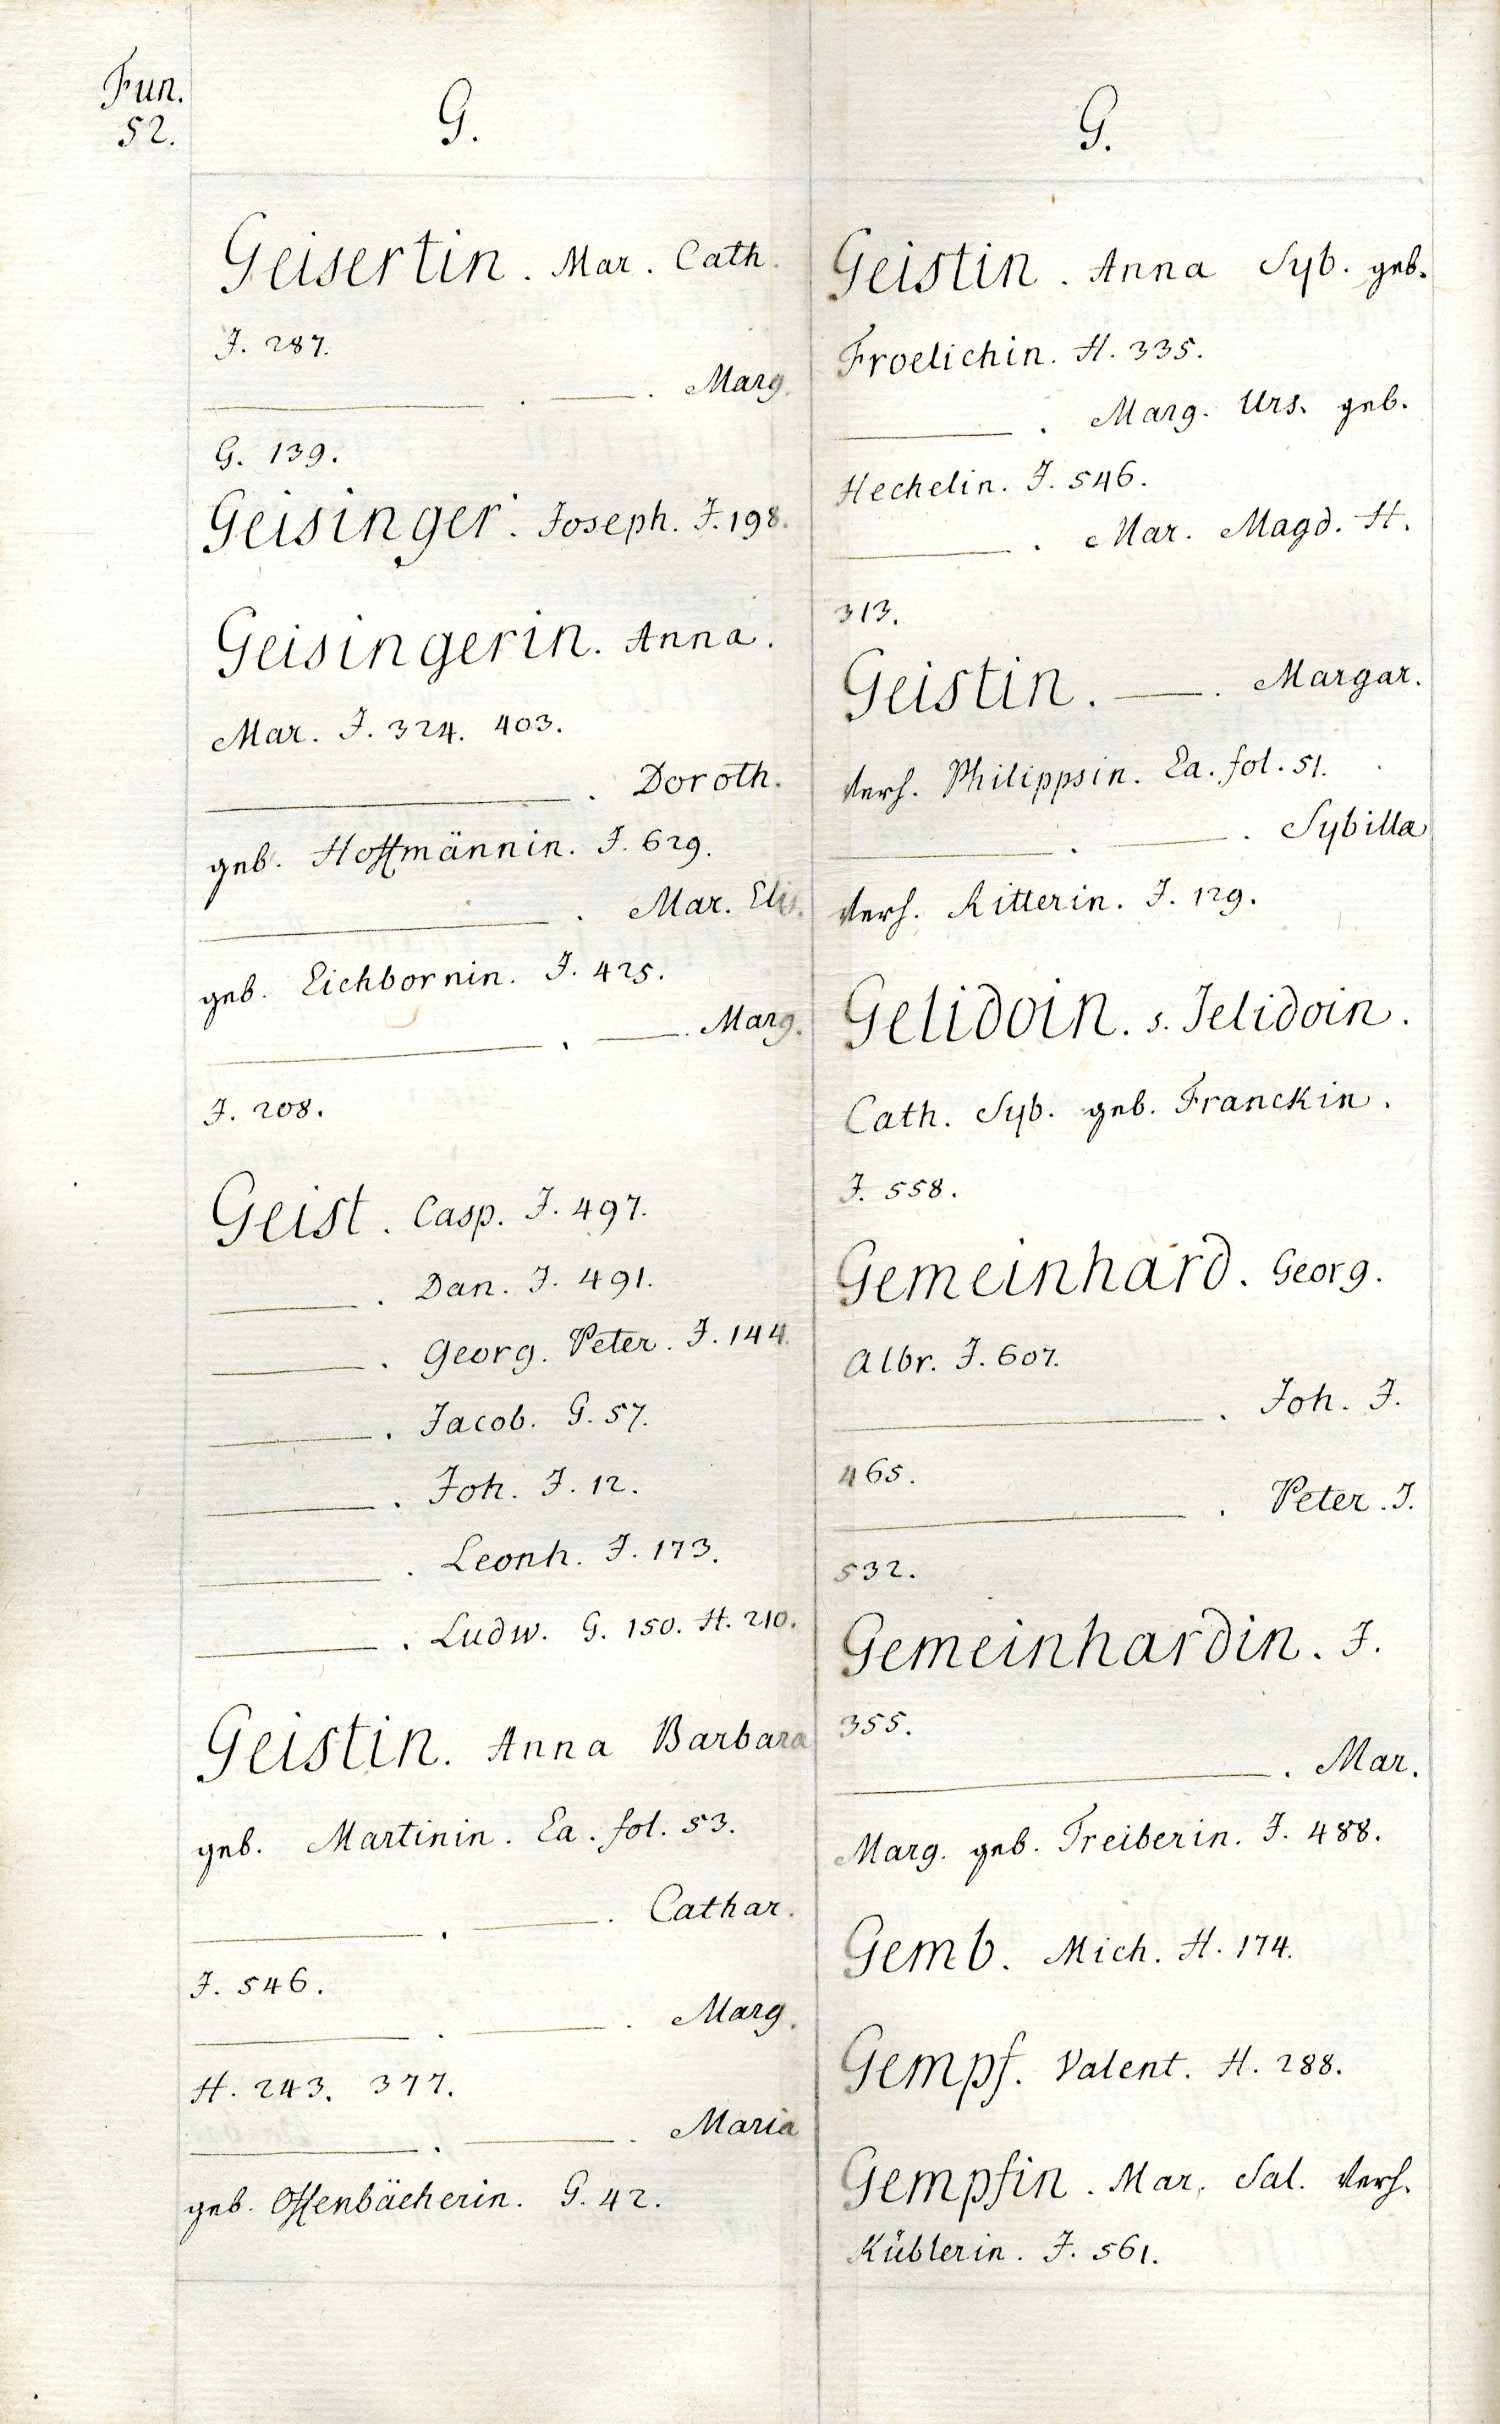 Fun.
52.
G.
Geisertin. Mar. Cath.
J. 287.
——— . —— . Marg.
G. 139.
Geisinger. Joseph. J. 198.
Geisingerin. Anna.
Mar. J. 324. 403.
——— . Doroth.
geb. Hoffmännin. J. 629.
——— . Mar. Elis.
geb. Eichbornin. J. 425.
——— . —— . Marg.
J. 208.
Geist. Casp. J. 497.
——— . Dan. J. 491.
——— . Georg. Peter. J. 144.
——— . Jacob. G. 57.
——— . Joh. J. 12.
——— . Leonh. J. 173.
——— . Ludw. G. 150. H. 210.
Geistin. Anna Barbara
geb. Martinin. Ea. fol. 53.
——— . —— . Cathar.
J. 546.
——— . —— . Marg.
H. 243. 377.
——— . —— . Maria
geb. Offenbächerin. G. 42.
G.
Geistin. Anna Syb. geb.
Froelichin. H. 335.
——— . Marg. Urs. geb.
Hechelin. J. 546.
——— . Mar. Magd. H.
313.
Geistin. —— . Margar.
verh. Philippsin. Ea. fol. 51.
——— . —— . Sybilla
verh. Ritterin. J. 129.
Gelidoin. s. Jelidoin.
Cath. Syb. geb. Franckin.
J. 558.
Gemeinhard. Georg.
Albr. J. 607.
——— . Joh. J.
465.
——— . Peter. J.
532.
Gemeinhardin. J.
355.
——— . Mar.
Marg. geb. Treiberin. J. 488.
Gemb. Mich. H. 174.
Gempf. Valent. H. 288.
Gempfin. Mar. Sal. verh.
Küblerin. J. 561.